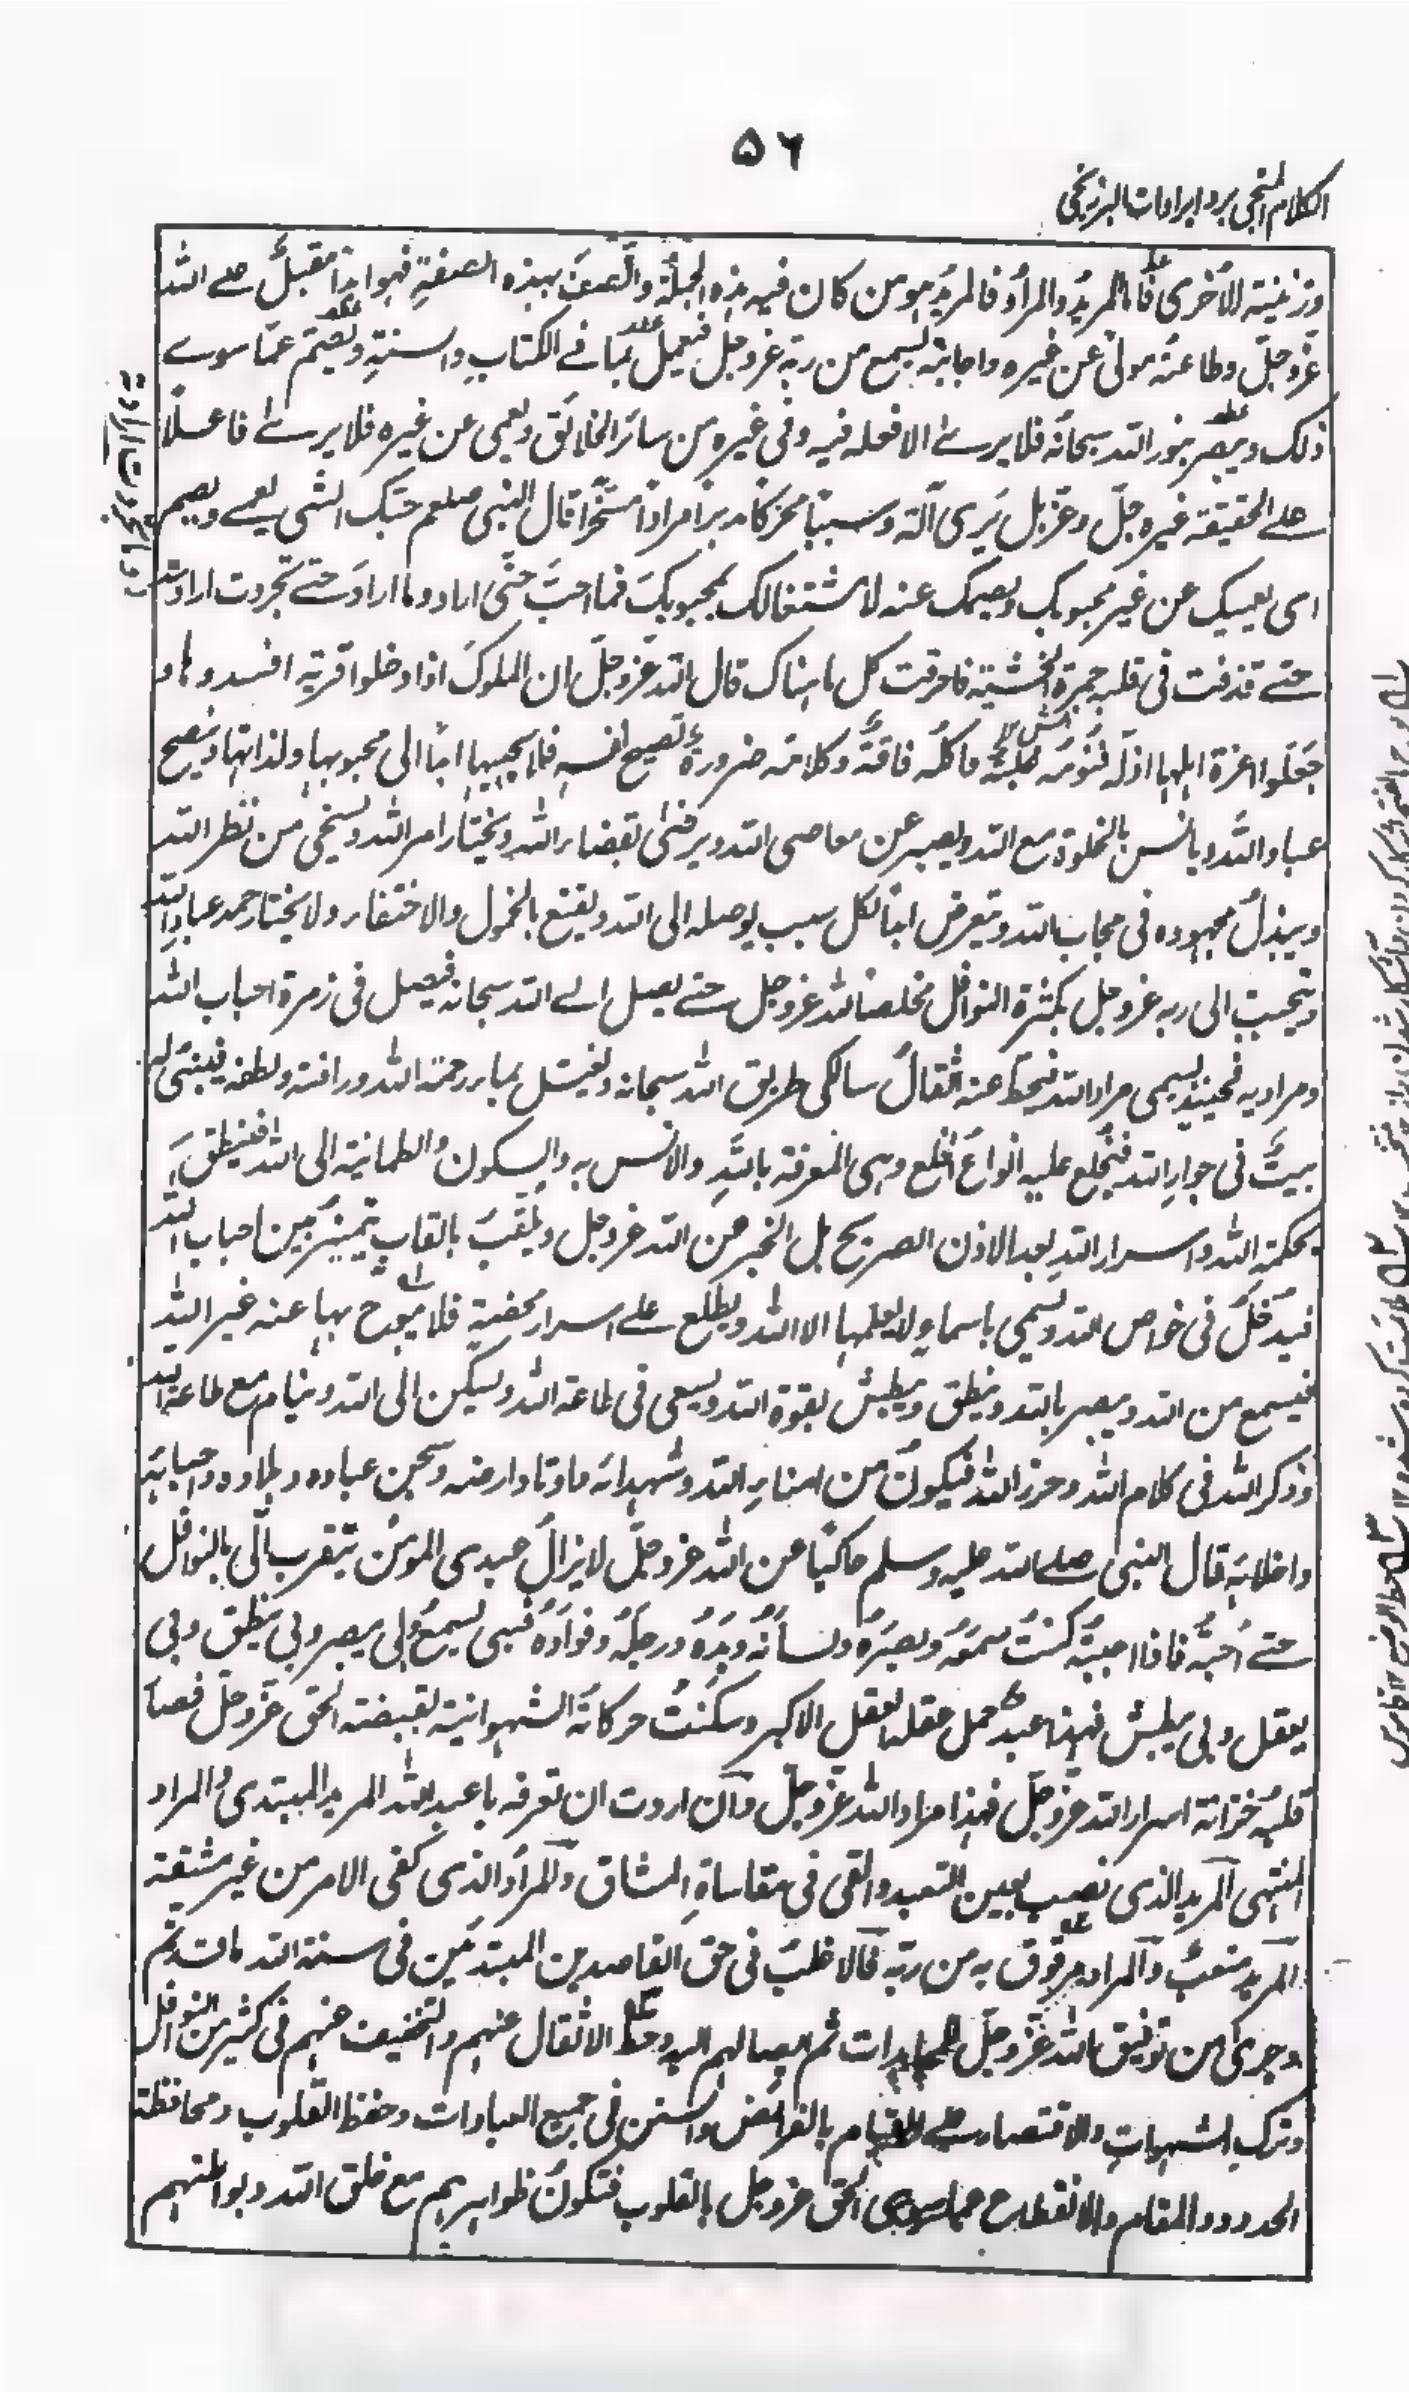 ۵۶
الکلام المنجی برد ایرادات البرزنجی
وزینیته الاخری فاما المرید والمراد فالمرید هو من کان فیه هذه الجملة واتصف بهذه الصفة فهو ابدا مقبل علے الله
عزوجل وطاعته مولّ عن غیره واجابته یسمع من ربه عزوجل فیعمل بما فے الکتاب والسنة ویصم عما سوے
ذلک ویبصر بنور الله سبحانه فلا یرے الا فعله فیه وفی غیره من سائر الخلائق ویعمی عن غیره فلا یرے فاعلا
علے الحقیقة غیره جل وعز بل یری آلة وسببا محرکا مدبرا مرادا مسخرا قال النبی صلعم حبک الشی یعمے ویصم
ای یعمیک عن غیر محبوبک ویصمک عنه لاشتغالک بمحبوبک فما احب حتی اراد وما اراد حتے تجردت ارادته
حتے قذفت فی قلبه جمرة الخشیة فاحرقت کل ما هناک قال الله عزوجل ان الملوک اذا دخلوا قریة افسدوها و
جعلوا اعزة اهلها اذلة فنومه غلبة واکله فاقة وکلامه ضرورة ینصح نفسه فلا یجیبها ابدا الی محبوبها ولذاتها وینصح
عباد الله ویانس بالخلوة مع الله ویصبر عن معاصی الله ویرضی بقضاء الله ویختار امر الله ویستحی من نظر الله
ویبذل مجهوده فی محاب الله ویتعرض ابدا لکل سبب یوصله الی الله ویقنع بالخمول والاختفاء ولا یختار حمد عباد الله
ویتحبب الی ربه عزوجل بکثرة النوافل مخلصا لله عزوجل حتے یصل الے الله سبحانه فیحصل فی زمرة احباب الله
ومرادیه فحینئذ یسمی مراد الله فیحط عنه اثقال سالکی طریق الله سبحانه ویغتسل بماء رحمة الله ورافته ولطفه فیبنی له
بیت فی جوار الله فیخلع علیه انواع الخلع وهی المعرفة بالله والانس به والسکون والطمانینة الی الله فینطق
بحکمة الله واسرار الله بعد الاذن الصریح بل الخبر من الله عزوجل ویلقب بالقاب یتمیز بین احباب الله
فیدخل فی خواص الله ویسمی باسماء لا یعلمها الا الله ویطلع علے اسرار تخصیه فلا یبوح بها عنه غیر الله
فیسمع من الله ویبصر بالله وینطق ویبطش بقوة الله ویسعی فی طاعة الله ویسکن الی الله وینام مع طاعة الله
وذکر الله فی کلام الله وحرز الله فیکون من امناء الله وشهدائه واوتاد ارضه وسجن عباده وبلاده واحبابه
واخلائه قال النبی صلے الله علیه وسلم حاکیا عن الله عزوجل لا یزال عبدی المومن یتقرب الی بالنوافل
حتے احبه فاذا احببته کنت سمعه وبصره ولسانه ویده ورجله وفواده فبی یسمع وبی یبصر وبی ینطق وبی
یعقل وبی یبطش فهذا عبد حمل عقله العقل الاکبر وسکنت حرکاته الشهوانیة لقبضة الحق عزوجل فصار
قلبه خزانة اسرار الله عزوجل فهذا مراد الله عزوجل وان اردت ان تعرفه یا عبد الله المرید المبتدی والمراد
المنتهی المرید الذی نصب بعین التعبد والقی فی مقاساة المشاق والمراد الذی کفی الامر من غیر مشقة
المرید متعب والمراد مرفوق به من ربه فالاغلب فی حق القاصدین المبتدئین فی سنة الله ما تم
وجری من توفیق الله عزوجل للمجاهدات ثم ایصالهم الیه وحط الاثقال عنهم والتخفیف عنهم فی کثیر من النوافل
وترک الشهوات والاقتصار علے القیام بالفرائض والسنن فی جمیع العبادات وحفظ القلوب ومحافظة
الحدود والمقام والانقطاع عما سوی الحق عزوجل بالقلوب فتکون ظواهرهم مع خلق الله وبواطنهم